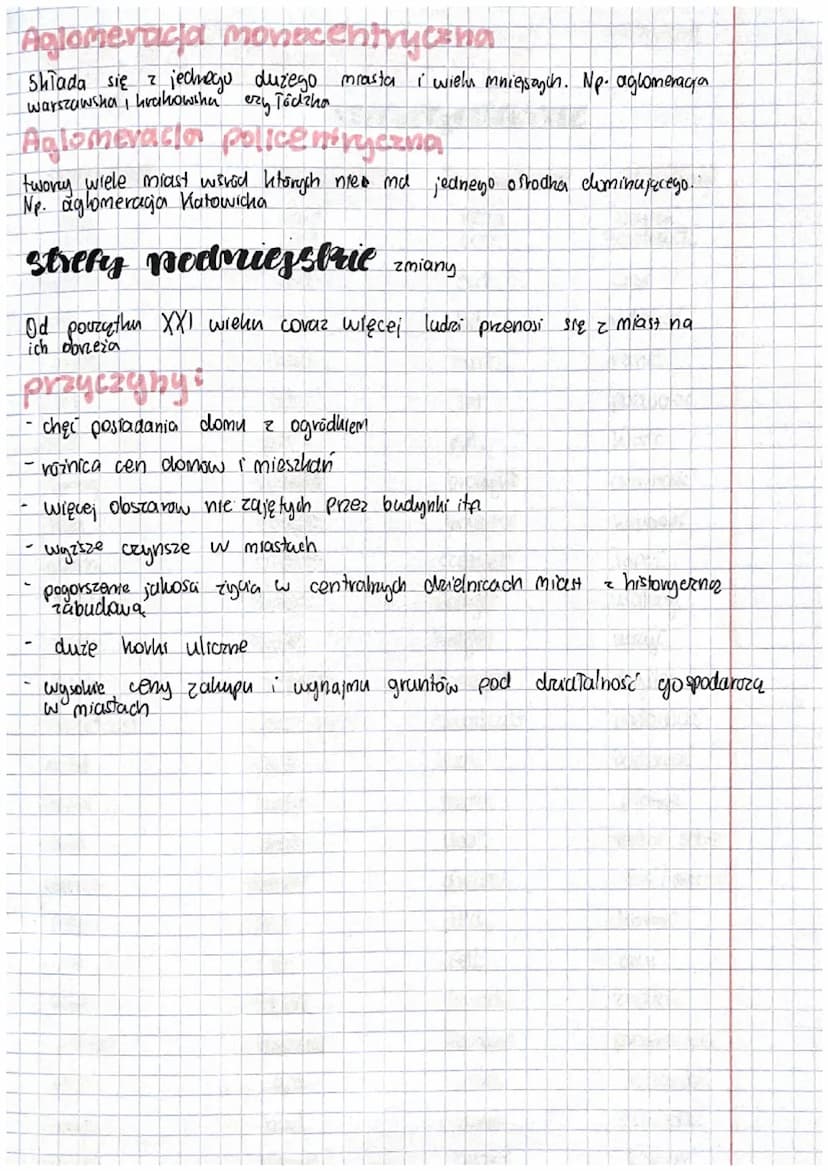 Aglomeracja monocentryczna
Składa się z jednego dużego miasta i wielu mniejszych. Np. aglomeracja
warszawska, krakowska czy łódzka
Aglomeracja policentryczna
tworzy wiele miast wśród których nie ma jednego ośrodka dominującego.
Np. aglomeracja Katowicka
strefy podmiejskie zmiany
Od początku XXI wieku coraz więcej ludzi przenosi się z miast na
ich obrzeża
przyczyny:
- chęć posiadania domu z ogródkiem
- różnica cen domow i mieszkań
- więcej obszarow nie zajętych przez budynki itp
- wyższe czynsze w miastach
- pogorszenie jakości życia w centralnych dzielnicach miast z historyczną
zabudową
- duże korki uliczne
- wysokie ceny zakupu i wynajmu gruntów pod działalność gospodarczą
w miastach